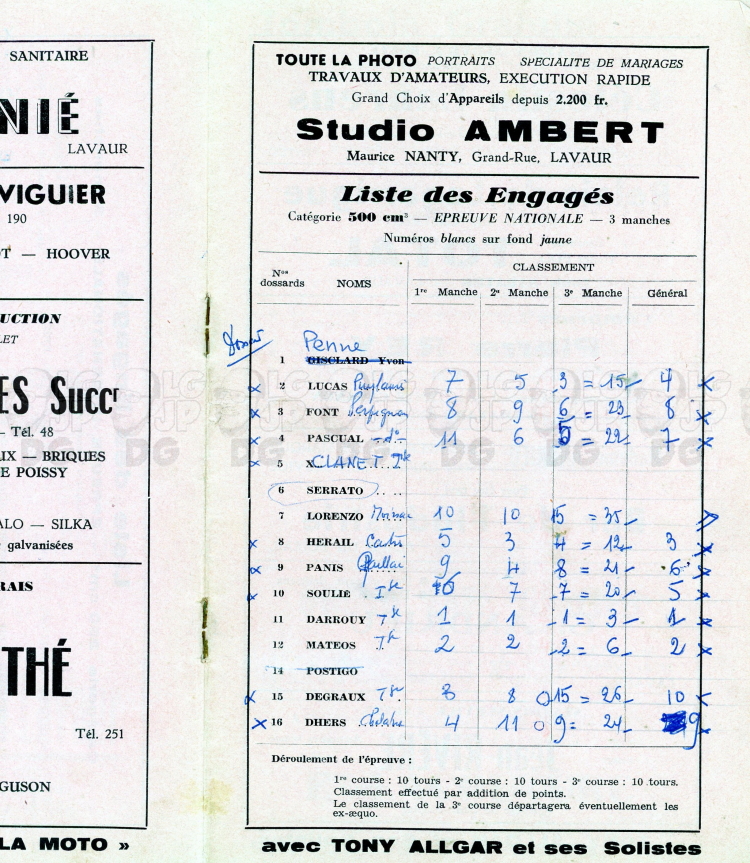 SANITAIRE
NIÉ
LAVAUR
VIGUIER
190
T — HOOVER
UCTION
LET
ES Succr
— Tél. 48
UX — BRIQUES
E POISSY
ALO — SILKA
e galvanisées
RAIS
THÉ
Tél. 251
GUSON
LA MOTO »
TOUTE LA PHOTO PORTRAITS SPECIALITE DE MARIAGES
TRAVAUX D'AMATEURS, EXECUTION RAPIDE
Grand Choix d'Appareils depuis 2.200 fr.
Studio AMBERT
Maurice NANTY, Grand-Rue, LAVAUR
Liste des Engagés
Catégorie 500 cm³ — EPREUVE NATIONALE — 3 manches
Numéros blancs sur fond jaune
Nos dossards NOMS CLASSEMENT
1re Manche 2e Manche 3e Manche Général
Penne
1 GISCLARD Yvon
2 LUCAS 7 5 3 = 15 4 x
3 FONT Perpignan 8 9 6 = 23 8 x
4 PASCUAL -d°- 11 6 5 = 22 7 x
5 X CLANET Tse
6 SERRATO ....
7 LORENZO 10 10 15 = 35
8 HERAIL Castres 5 3 4 = 12 3 x
9 PANIS 9 4 8 = 21 6 x
10 SOULIÉ Tse 6 7 7 = 20 5 x
11 DARROUY Tse 1 1 1 = 3 1 x
12 MATEOS Tse 2 2 2 = 6 2 x
14 POSTIGO
15 DEGRAUX Tse 3 8 0 15 = 26 10 x
16 DHERS 4 11 0 9 = 24 9 x
Déroulement de l'épreuve :
1re course : 10 tours - 2e course : 10 tours - 3e course : 10 tours.
Classement effectué par addition de points.
Le classement de la 3e course départagera éventuellement les
ex-æquo.
avec TONY ALLGAR et ses Solistes